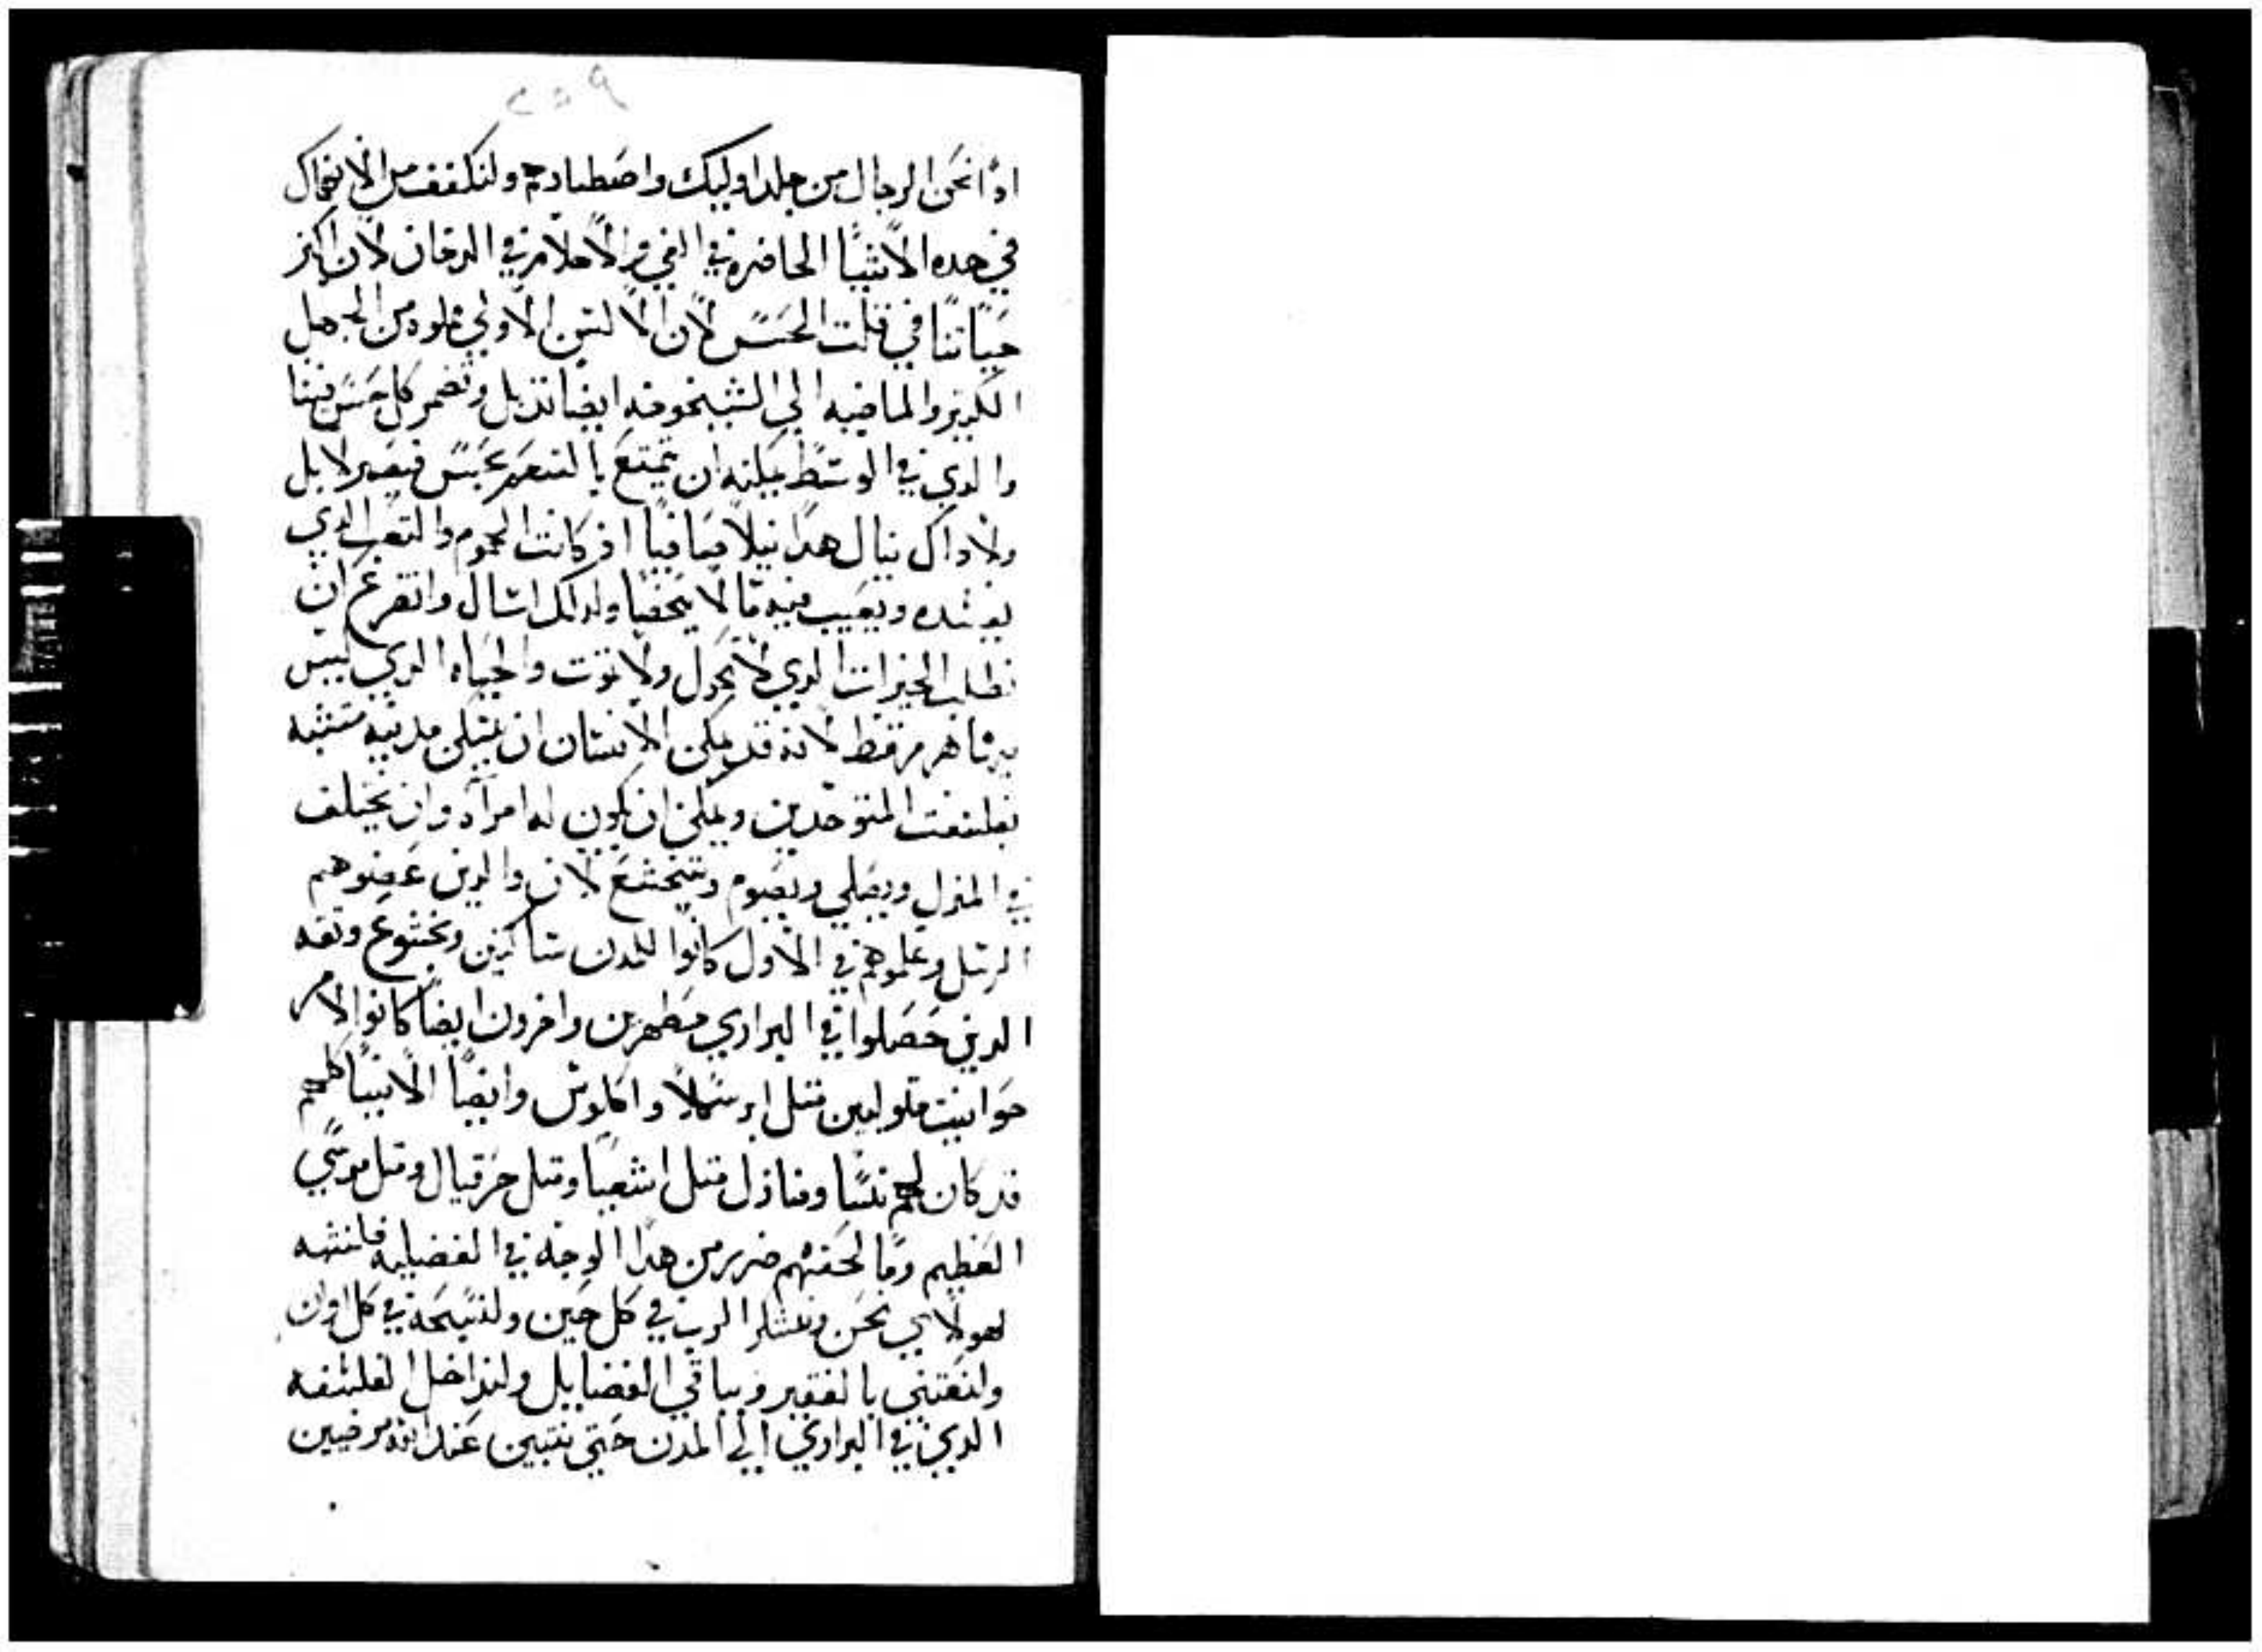 ٢٥٩
اذًا نحن الرجال من جلد اوليك واصطبارهم ولنكفف من الانهماك
في هده الاشيا الحاضره في الفي والاحلام في الدخان لان اكثر
حياتنا في قلت الحس لان السن الاولي مملوه من الجهل
الكثير والماضيه الي الشيخوخه ايضا تذبل وتضمر كل حس فينا
والدي في الوسط يمكنه ان يتمتع بالتنعم بحس قصير لا بل
ولا داك ينال هدا نيلا صافيا اذ كانت الهموم والتعب الدي
يفسده ويعيب فيه ما لا يحصا ولدلك اسال واتضرع ان
نطلب الخيرات الدي لا تحول ولا تموت والحياه الدي ليس
هرم قط لانه قد يمكن الانسان ان يسكن مدينه متشبه
بفلسفت المتوحدين ويمكن ان يكون له امراه وان يختلف
في المنزل ويصلي ويصوم ويتخشع لان والدين عضوهم
الرسل وعلموهم في الاول كانوا للمدن ساكنين وبخشوع وثقه
الدين حصلوا في البراري مظهرين واخرون ايضا كانوا لامر
حوانيت متولين متل ابرسكلا واكلوس وايضا الانبيا كلهم
قد كان لهم نسا ومنازل متل اشعيا ومتل حزقيال ومتل موسي
العظيم وما لحقهم ضرر من هدا الوجه في الفضايله فلنتشبه
لهولاي نحن ونشكر الرب في كل حين ولنسبحه في كل اوان
ولنعتني بالفقير وبباقي الفضايل ولنداخل الفلسفه
الدي في البراري الي المدن حتي نتبين عند الله مرضيين